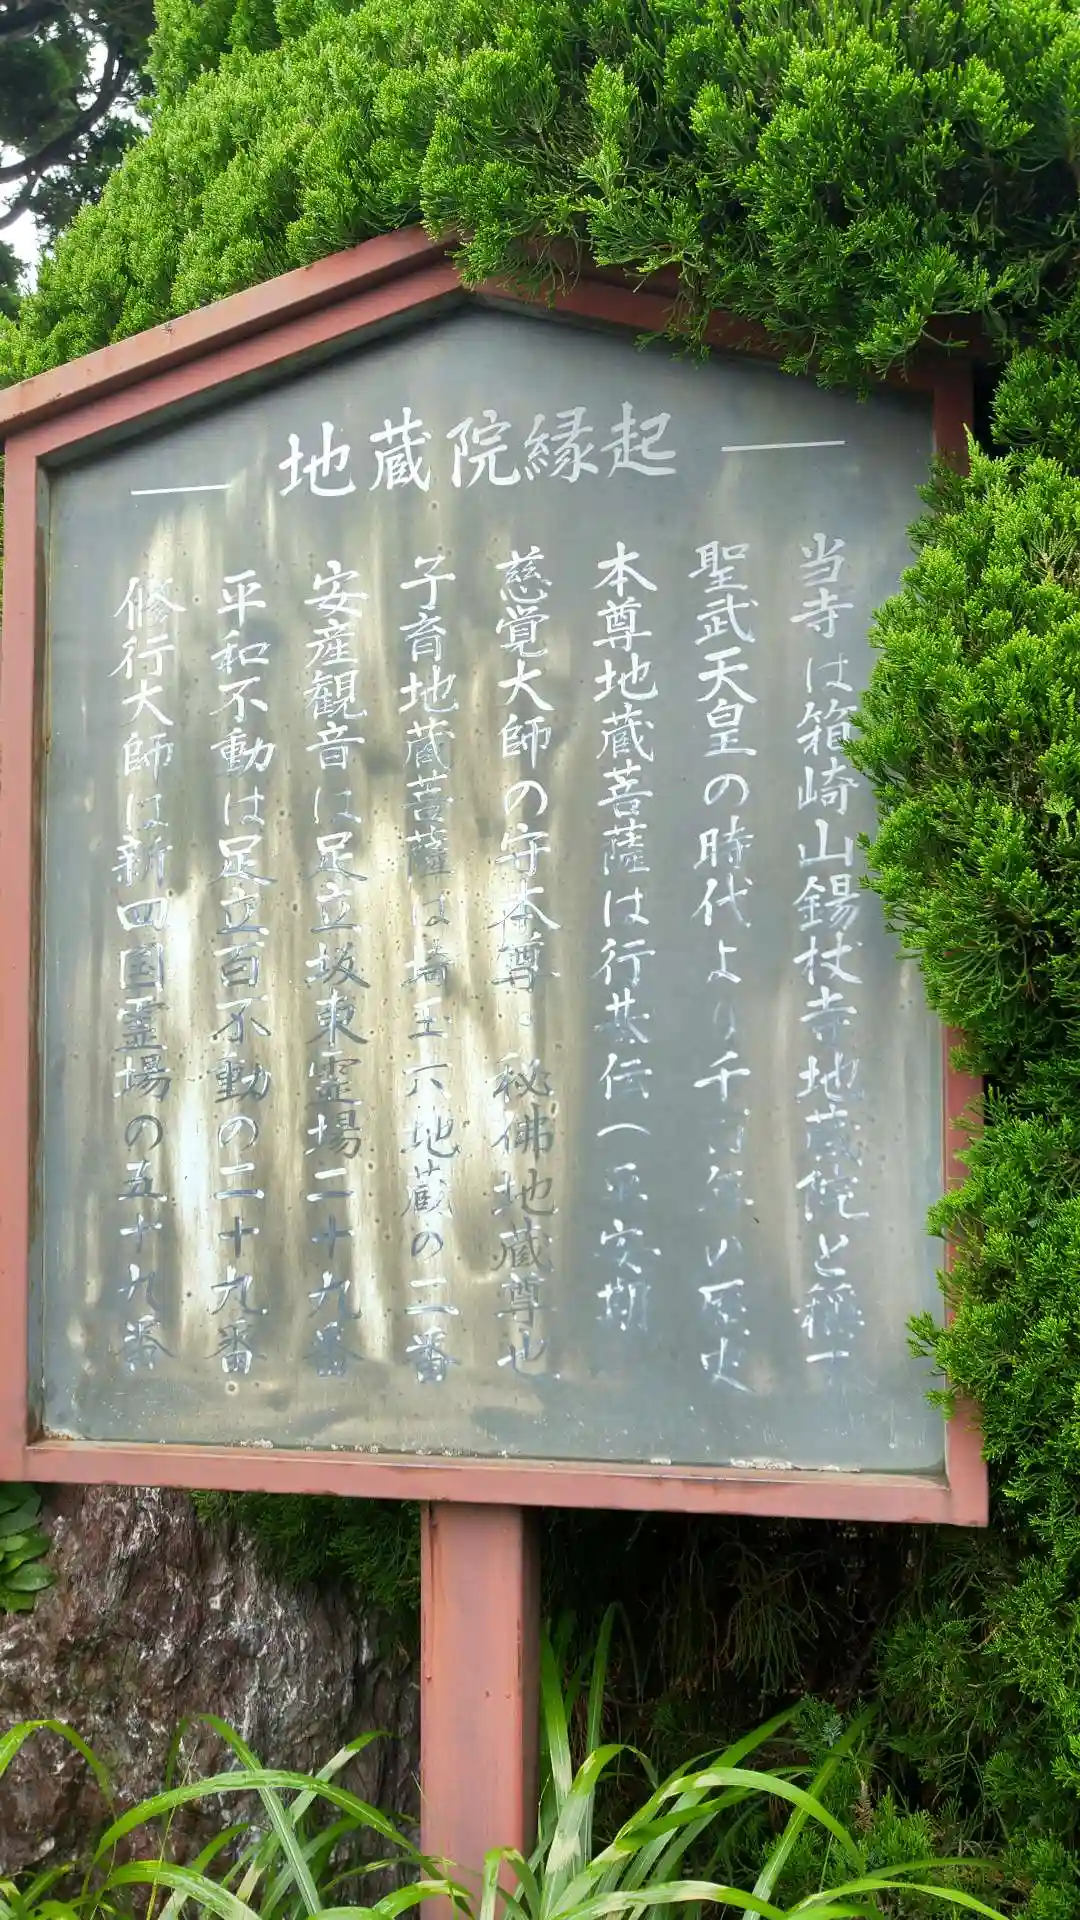 地蔵院縁起
当寺は箱崎山錫杖寺地蔵院と称す
聖武天皇の時代より千百年の歴史
本尊地蔵菩薩は行基伝へ平安期
慈覚大師の守本尊。秘佛地蔵尊也
子育地蔵菩薩は埼玉六地蔵の二番
安産観音は足立坂東霊場二十九番
平和不動は足立百不動の二十九番
修行大師は新四国霊場の五十九番